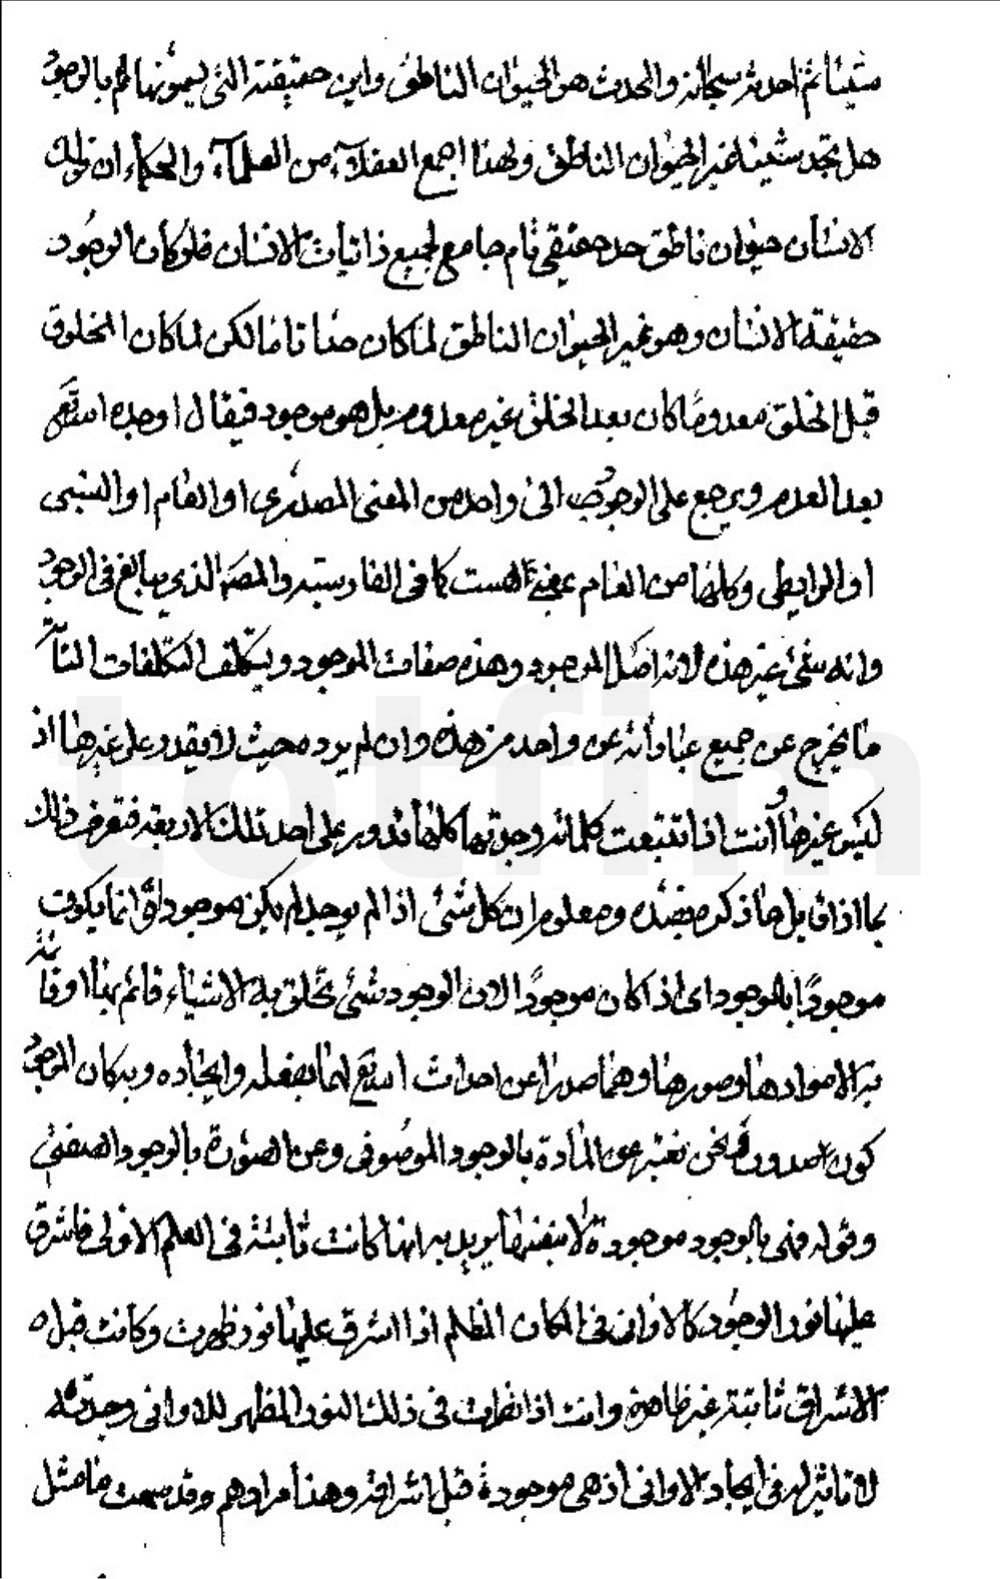 شيئا ثم احدثه سبحانه والمحدث هو الحيوان الناطق واين حقيقته التى يسمونها لهم بالوجود
هل تجد شيئا غير الحيوان الناطق ولهذا اجمع العقلاء من العلماء والحكماء ان قولك
الانسان حيوان ناطق حد حقيقى تام جامع لجميع ذاتيات الانسان فلو كان الوجود
حقيقة الانسان وهو غير الحيوان الناطق لما كان حدا تاما لكن لما كان المخلوق
قبل الخلق معدوما كان بعد الخلق غير معدوم بل هو موجود فيقال اوجده الله تع
بعد العدم ويرجع على الوجود الى واحد من المعنى المصدرى او العام او النسبى
او الرابطى وكلها من العام بمعنى هست كما فى الفارسية والمصنف الذى يبالغ فى الوجود
وانه شىء غير هذه لانه اصل الموجود وهذه صفات الموجود ويتكلف التكلفات التامة
ما يخرج عن جميع عباراته عن واحد من هذه وان لم يرده حيث لا يقدر على غيرها اذ
ليس غيرها وانت اذا تتبعت كلماته وجدتها كلها تدور على احد تلك الاربعة فتعرف ذلك
بل ما ذكر ومعلوم ان كل شىء اذا لم يوجد لم يكن موجودا وانما يكون
موجودا بالوجود اى اذا كان موجودا لان الوجود شىء تحلق به الاشياء قائم بها او قائمة
به الا موادها وصورها وهما صدرا عن احداث الله تع لهما بفعله وايجاده وبه كان الموجود
كون صدور فنحن نعبر عن المادة بالوجود الموصوفى وعن الصورة بالوجود الصفتى
وقوله فهى بالوجود موجودة لا بنفسها يريد به انها كانت ثابتة فى العلم الاولى فاشرق
عليها نور الوجود كالاوانى فى المكان المظلم اذا اشرق عليها نور ظهرت وكانت قبل
الاشراق ثابتة غير ظاهرة وانت اذا نظرت فى ذلك النور المظهر للاوانى وجدته
لا تاثير له فى ايجاد الاوانى اذ هى موجودة قبل اشراقه وهذا مرادهم وقد سمعت ما مثل
totfim